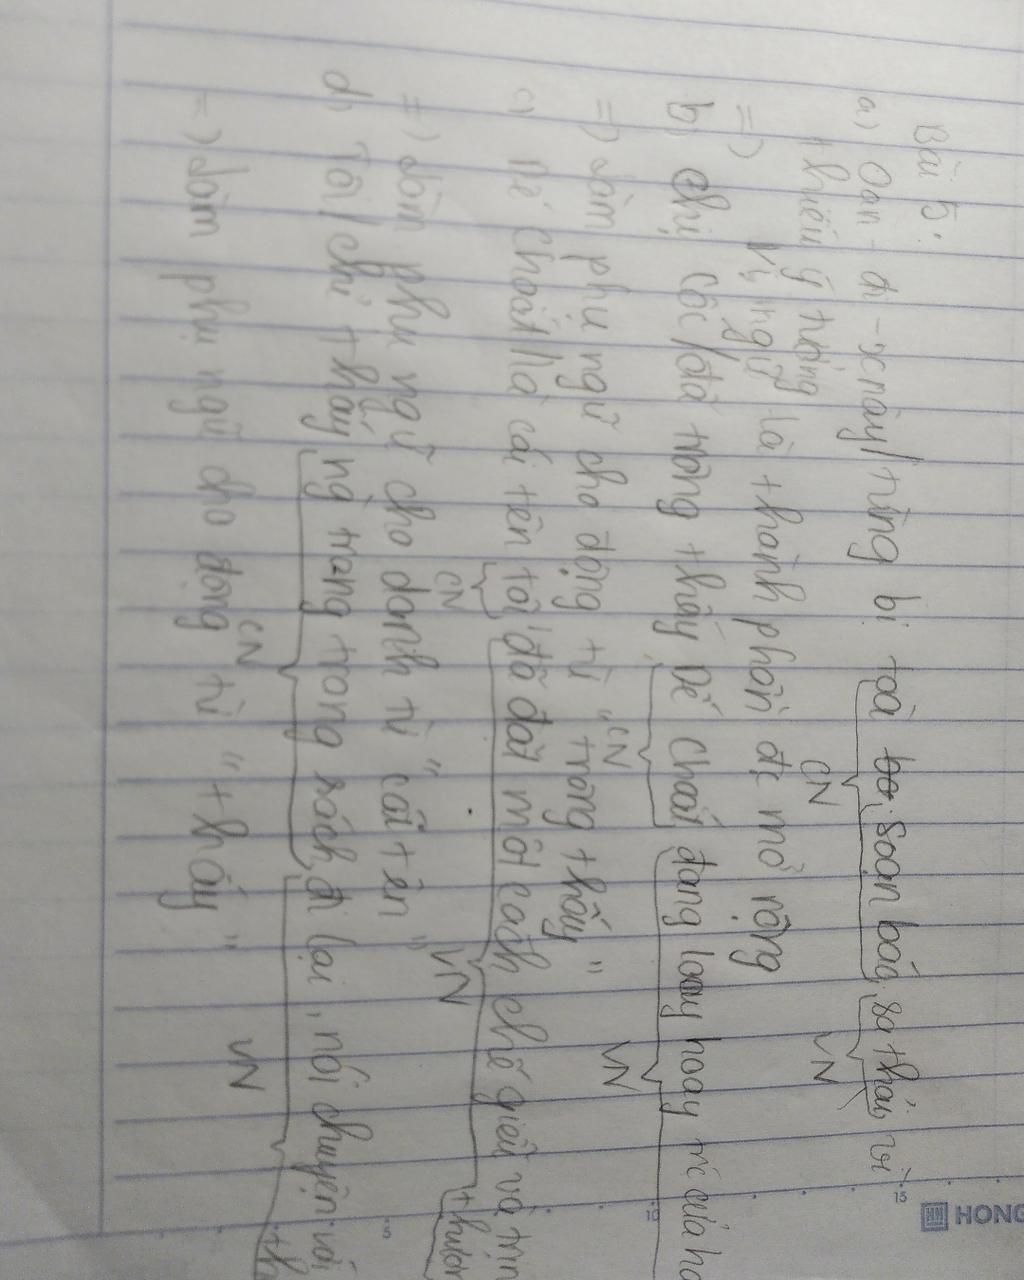 Bài 5:
a) Oan-đi-xnây/từng bị toà soạn báo sa thải vì
thiếu ý tưởng
CN VN
=) Vị ngữ là thành phần đc mở rộng
b) Chị Cốc/đã trông thấy Dế choắt đang loay hoay
CN VN
=) Làm phụ ngữ cho động từ "trông thấy"
c) Dế Choắt/là cái tên tôi đã đặt một cách chế giễu và
CN VN
=) Làm phụ ngữ cho danh từ "cái tên"
d) Tôi/chỉ thấy trong sách, đi lại, nói chuyện với
CN VN
=) Làm phụ ngữ cho động từ "thấy"
5
10
15
HONG